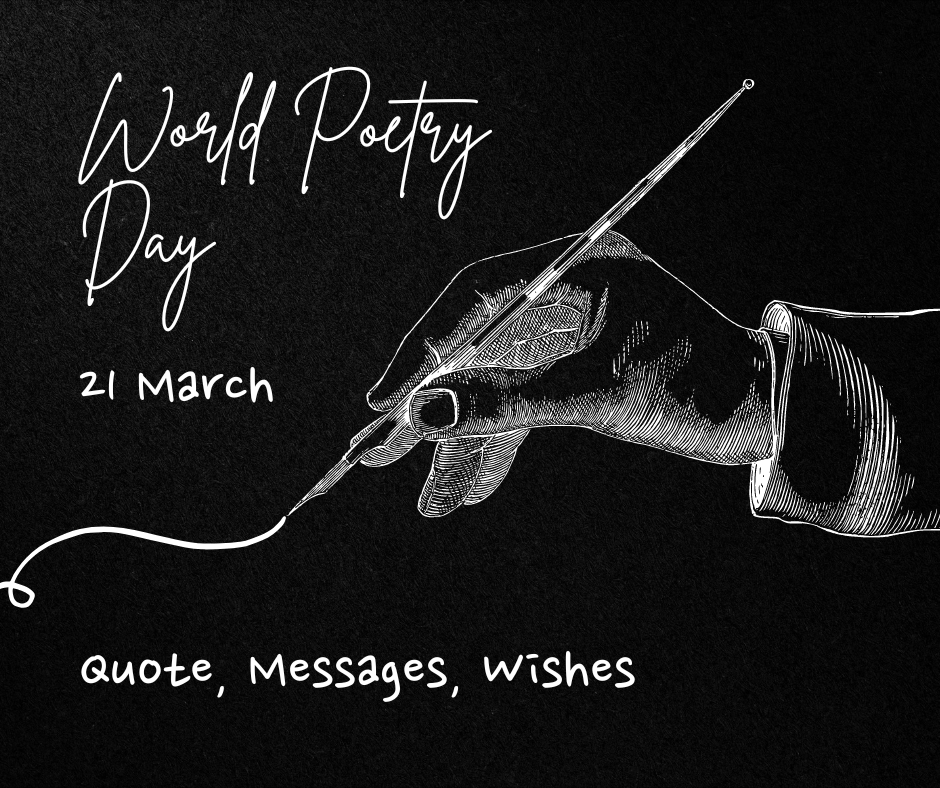 World Poetry
Day
21 March
Quote, Messages, Wishes